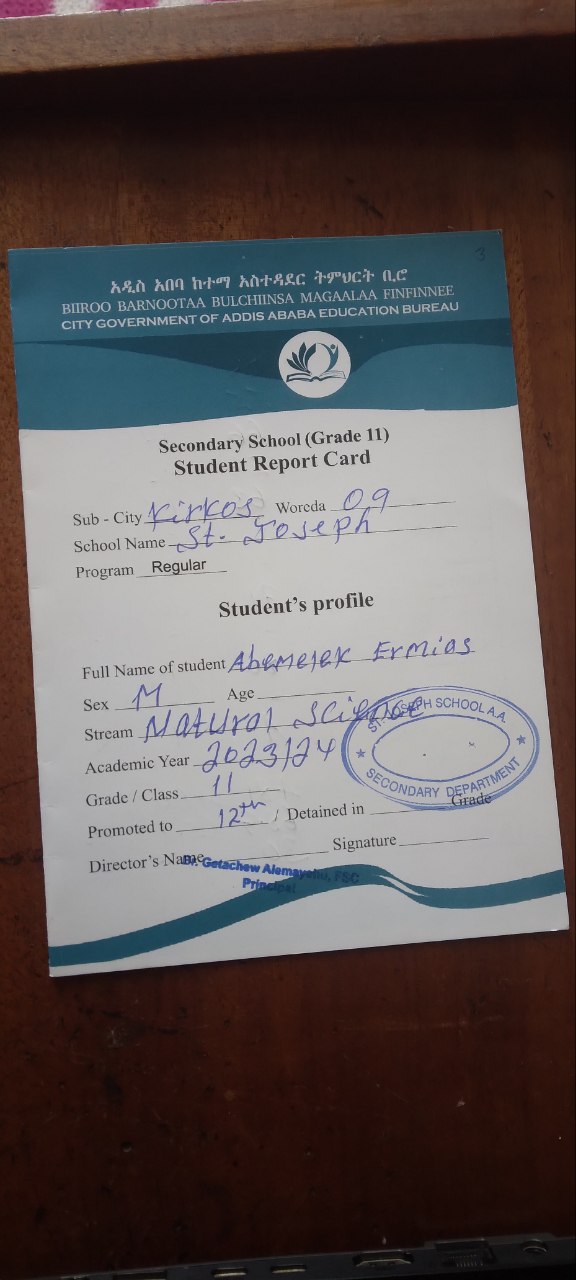 3
አዲስ አበባ ከተማ አስተዳደር ትምህርት ቢሮ
BIIROO BARNOOTAA BULCHIINSA MAGAALAA FINFINNEE
CITY GOVERNMENT OF ADDIS ABABA EDUCATION BUREAU
Secondary School (Grade 11)
Student Report Card
Sub - City Kirkos Woreda 09
School Name St. Joseph
Program Regular
Student's profile
Full Name of student Abemelek Ermias
Sex M Age
Stream Natural Science
ST. JOSEPH SCHOOL A.A.
SECONDARY DEPARTMENT
Academic Year 2023/24
Grade / Class 11
Promoted to 12th / Detained in Grade
Director's Name Br. Getachew Alemayehu, FSC Signature
Principal